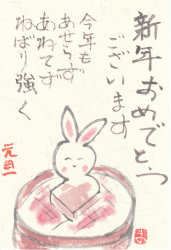 新年おめでとう
ございます
今年も
あせらず
あわてず
ねばり強く
元旦